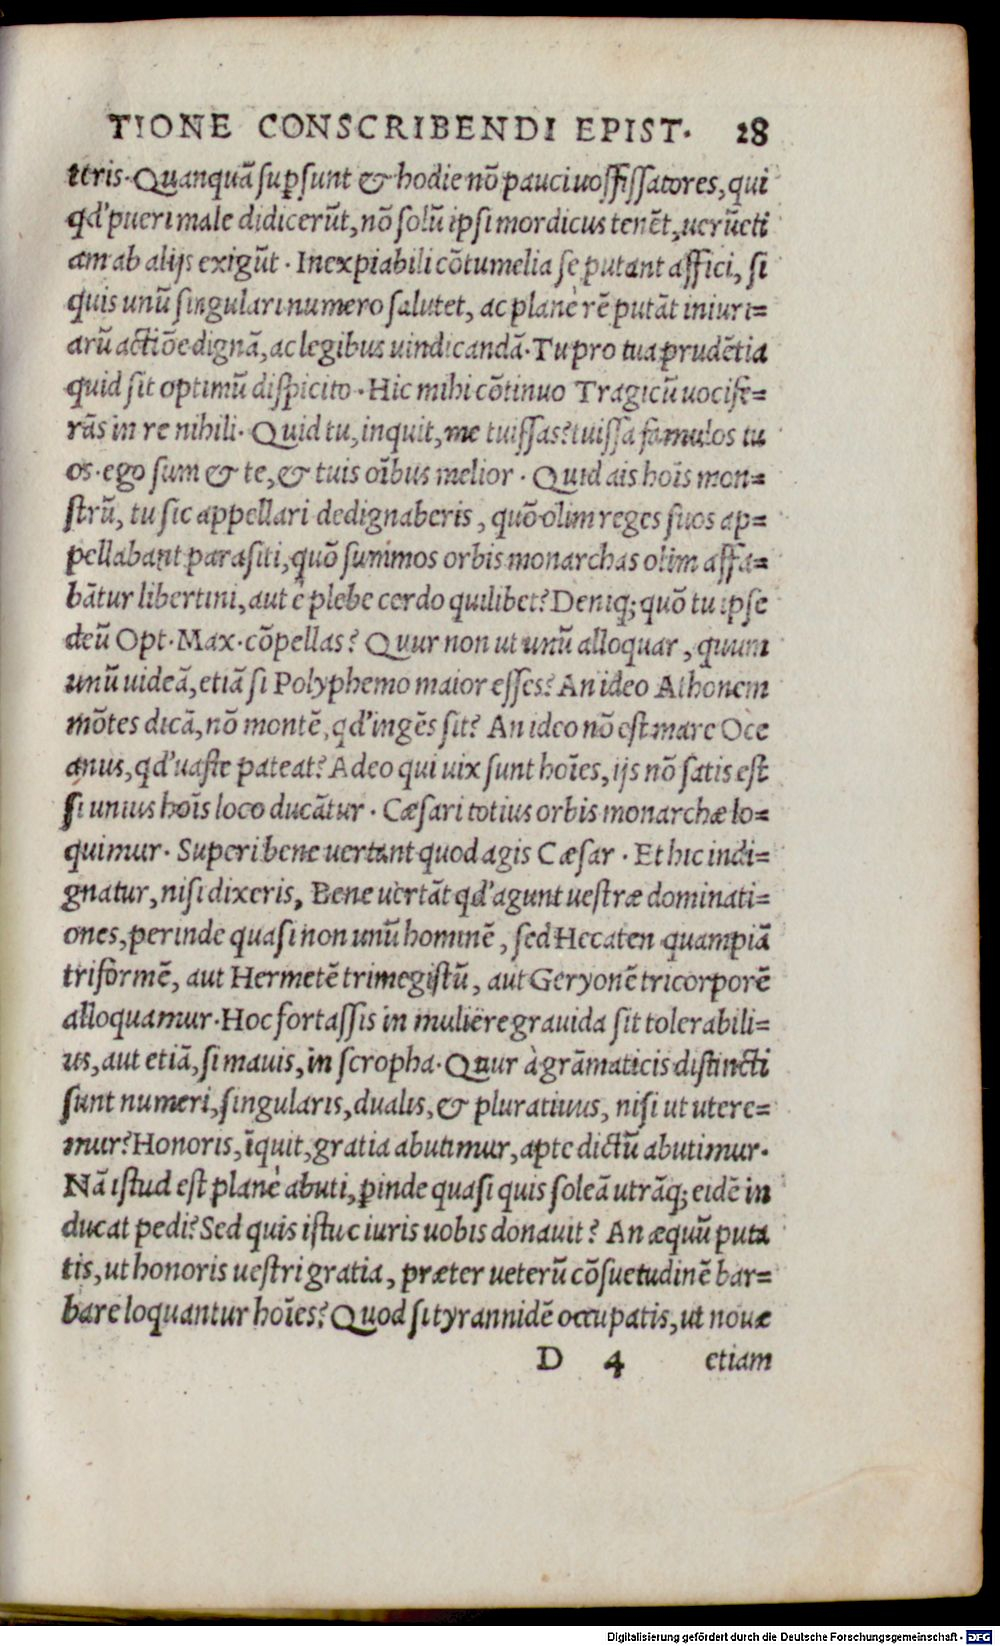 TIONE CONSCRIBENDI EPIST. 28
tris. Quanquã sup̱sunt & hodie nõ pauci uossissatores, qui
qd' pueri male didicerũt, nõ solũ ipsi mordicus tenẽt, uerũeti
am ab alijs exigũt. Inexpiabili cõtumelia se putant affici, si
quis unũ singulari numero salutet, ac planè rẽ putãt iniuri=
arũ actiõe dignã, ac legibus uindicandã. Tu pro tua prudẽtia
quid sit optimũ dispicito. Hic mihi cõtinuo Tragicũ uocife=
rãs in re nihili. Quid tu, inquit, me tuissas? tuissa famulos tu
os. ego sum & te, & tuis oĩbus melior. Quid ais hoĩs mon=
strũ, tu sic appellari dedignaberis, quõ olim reges suos ap=
pellabant parasiti, quõ summos orbis monarchas olim affa=
bãtur libertini, aut è plebe cerdo quilibet? Deniq; quõ tu ipse
deũ Opt. Max. cõpellas? Quur non ut unũ alloquar, quum
unũ uideã, etiã si Polyphemo maior esses? An ideo Athonem
mõtes dicã, nõ montẽ, qd' ingẽs sit? An ideo nõ est mare Oce
anus, qd' uaste pateat? Adeo qui uix sunt hoĩes, ijs nõ satis est
si unius hoĩs loco ducãtur. Cæsari totius orbis monarchæ lo=
quimur. Superi bene uertant quod agis Cæsar. Et hic indi=
gnatur, nisi dixeris, Bene uertãt qd' agunt uestræ dominati=
ones, perinde quasi non unũ hominẽ, sed Hecaten quampiã
triformẽ, aut Hermetẽ trimegistũ, aut Geryonẽ tricorporẽ
alloquamur. Hoc fortassis in muliere grauida sit tolerabili=
us, aut etiã, si mauis, in scropha. Quur à grãmaticis distincti
sunt numeri, singularis, dualis, & pluratiuus, nisi ut utere=
mur? Honoris, ĩquit, gratia abutimur, apte dictũ abutimur.
Nã istud est planè abuti, p̱inde quasi quis soleã utrãq; eidẽ in
ducat pedi? Sed quis istuc iuris uobis donauit? An æquũ puta
tis, ut honoris uestri gratia, præter ueterũ cõsuetudinẽ bar=
bare loquantur hoĩes? Quod si tyrannidẽ occupatis, ut nouæ
D 4 etiam
Digitalisierung gefördert durch die Deutsche Forschungsgemeinschaft - DFG